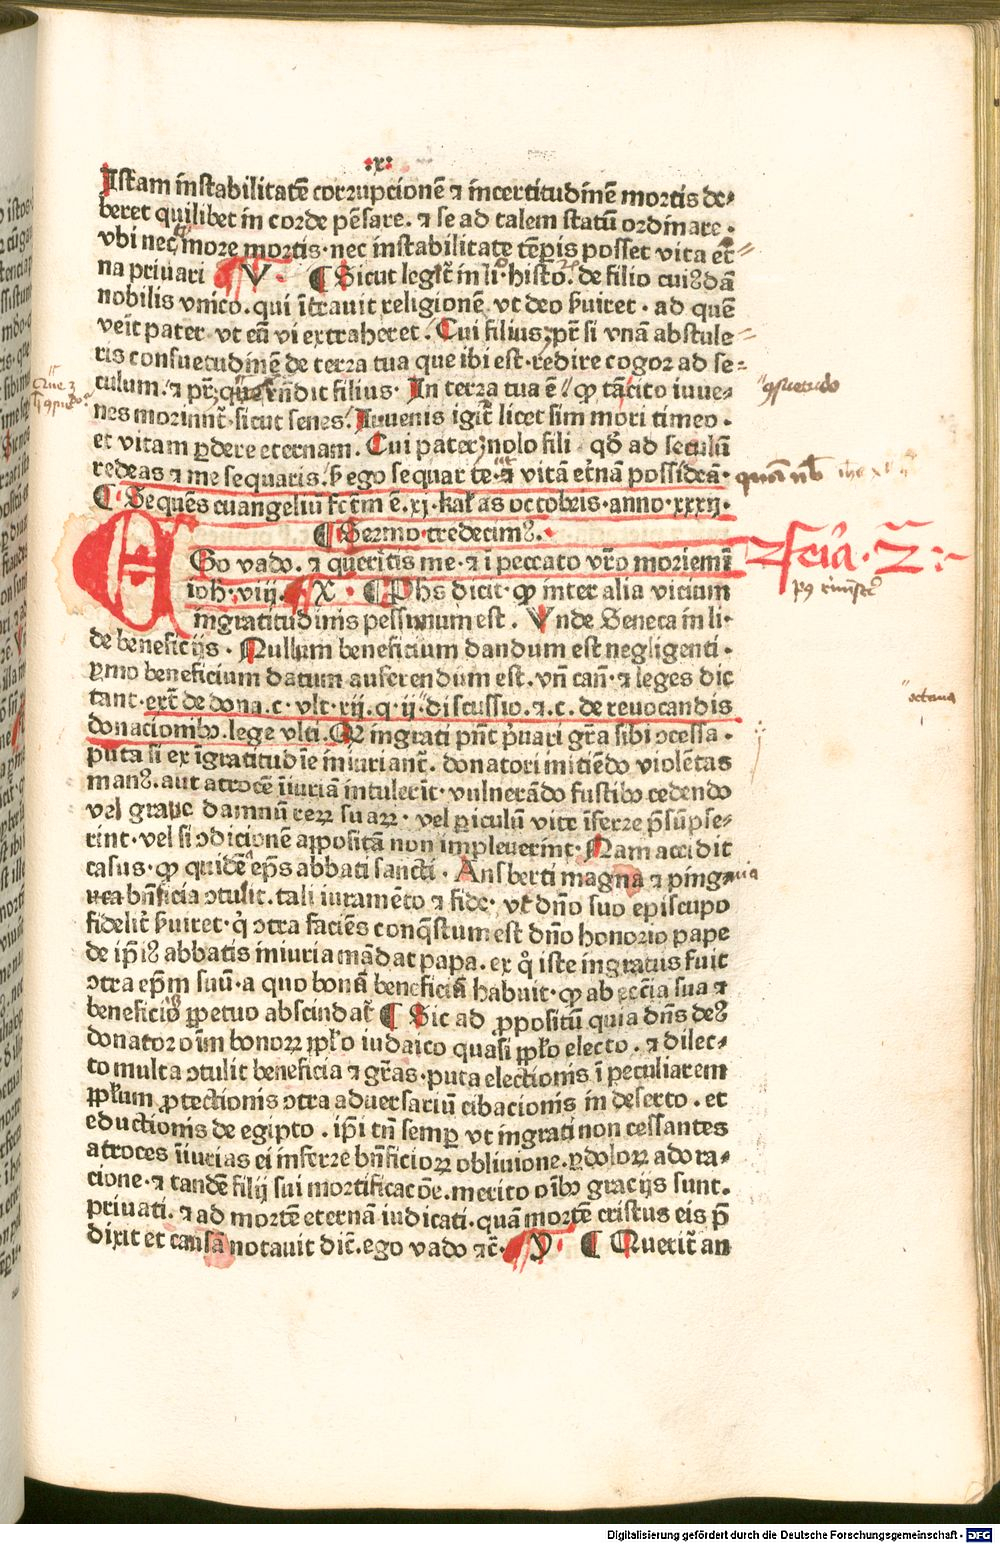 ·x·
Istam instabilitatē corrupcionē ⁊ incertitudinē mortis de⸗
beret quilibet in corde pēsare. ⁊ se ad talem statū ordinare ·
vbi nec more mortis · nec instabilitate tēpis posset vita et̄⸗
na priuari V · ¶ Sicut legit̄ in li° · histo. de filio cuiꝰdā
nobilis vnico. qui īt̄rauit religionē. vt deo ẜuiret · ad quē
veīt pater · vt eū vi extraheret. Cui filius; pr̄ si vnā abstule⸗
ris consuetudinē de terra tua que ibi est · redire cogor ad se⸗
culum. ⁊ pr̄; que rn̄dit filius · In terra tua ē. ꝙ tā cito iuue⸗
nes moriunt̄ · sicut senes. Iuuenis igit̄ licet sim mori timeo ·
et vitam ꝑdere eternam. Cui pater; nolo fili qđ ad seculū
redeas ⁊ me sequaris. ẜ ego sequar te · ⁊ vitā et̄nā possideā ·
¶ Sequēs euangeliū fc̄tm ē. xj · kal'as octobris · anno · xxxij ·
¶ Sermo tredecimꝰ ·
EGo vado. ⁊ queritis me · ⁊ ī peccato vr̄o moriemī
ioh · viij. X · ¶ Phs dicit · ꝙ inter alia vicium
ingratitudinis pessimum est. Vnde Seneca in li·
de beneficijs · Nullum beneficium dandum est negligenti ·
ꝑmo beneficium datum auferendum est. vn̄ can̄ · ⁊ leges dic
tant · ext̄ de dona. c · vlt · xij. q · ij · discussio. ⁊. c. de reuocandis
donacionibꝰ. lege vlti. Qꝫ ingrati pn̄t p̄uari gr̄a sibi ↄcessa ·
puta si ex īgratitudīe iniuriant̄. donatori initiēdo violētas
manꝰ. aut atrocē īiuriā intulerīt · vulnerādo fustibꝰ cedendo
vel graue damnū reꝝ suaꝝ · vel ꝑiculū vite īferre p̄sūpse⸗
rint · vel si ↄdicionē appositā non impleuerint · Nam accidit
casus · ꝙ quidē ep̄s abbati sancti · Ansberti magna ⁊ ping
uia bn̄ficia ↄtulit. tali iuramēto ⁊ fide · vt dn̄o suo episcupo
fidelit̄ ẜuiret · q̇ ↄtra faciēs conq̄stum est dn̄o honorio pape
de ip̄iꝰ abbatis iniuria mādat papa. ex q̊ iste ingratus fuit
ↄtra ep̄m suū · a quo bona beneficia habuit · ꝙ ab ecc̄ia sua ⁊
beneficio ꝑpetuo abscindat̄ ¶ Sic ad ꝓpositū quia dn̄s deꝰ
donator oīm bonoꝝ ppl'o iudaico quasi ppl'o electo. ⁊ dilec⸗
to multa ↄtulit beneficia ⁊ gr̄as · puta electionis ī peculiarem
ppl'um ꝓtectionis ↄtra aduersariū cibacionis in deserto. et
eductionis de egipto. ip̄i tn̄ semꝑ vt ingrati non cessantes
atroces īiurias ei inferre bn̄ficioꝝ obliuione. ꝑ doloꝝ adora⸗
cione · ⁊ tandē filij sui mortificacōe. merito oībꝰ gracijs sunt.
priuati. ⁊ ad mortē eternā iudicati · quā mortē cristus eis p̄
dixit et causā notauit dic̄. ego vado ⁊c̄ · Y · ¶ Querit̄ an
Digitalisierung gefördert durch die Deutsche Forschungsgemeinschaft - DFG